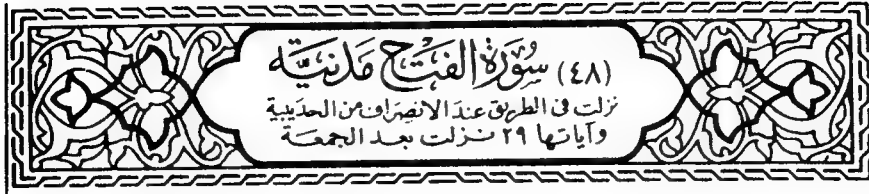 (٤٨) سُورَة الفَتْح مَدَنيَّة
نزلت في الطريق عند الانصراف من الحديبية
وآياتها ٢٩ نزلت بعد الجمعة